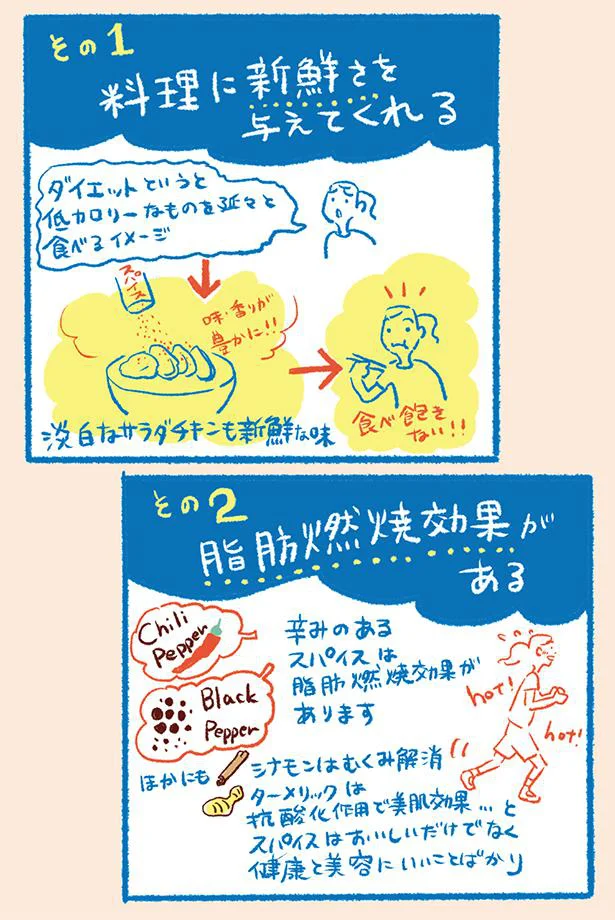 その1
料理に新鮮さを
与えてくれる
ダイエットというと
低カロリーなものを延々と
食べるイメージ
スパイス
味・香りが
豊かに!!
淡白なサラダチキンも新鮮な味
食べ飽き
ない!!
その2
脂肪燃焼効果が
ある
Chili
Pepper
Black
Pepper
辛みのある
スパイスは
脂肪燃焼効果が
あります
hot!
hot!
ほかにも
シナモンはむくみ解消
ターメリックは
抗酸化作用で美肌効果…と
スパイスはおいしいだけでなく
健康と美容にいいことばかり